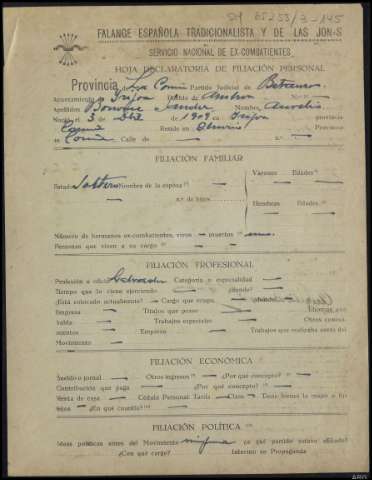 SM 65255/3-145
FALANGE ESPAÑOLA TRADICIONALISTA Y DE LAS JON-S
SERVICIO NACIONAL DE EX-COMBATIENTES
HOJA DECLARATORIA DE FILIACIÓN PERSONAL
Provincia de La Coruña Partido Judicial de Betanzos
Ayuntamiento Irijoa
Apellidos Nombre, Aurelio
Nació el 3 de de 1909 en Irijoa provincia
Coruña Reside en Provincia
Coruña Calle de
FILIACIÓN FAMILIAR
Varones Edades
Estado Soltero Nombre de la esposa
n.º de hijos
Hembras Edades
Número de hermanos ex-combatientes, vivos muertos
Personas que viven a su cargo
FILIACIÓN PROFESIONAL
Profesión u oficio Labrador Categoría o especialidad
Tiempo que lo viene ejerciendo ¿dónde?
¿Está colocado actualmente? Cargo que ocupa
Empresa Títulos que posee Idiomas que
habla Trabajos especiales Otros conoci-
mientos Empresa Trabajos que realizaba antes del
Movimiento
FILIACIÓN ECONÓMICA
Sueldo o jornal Otros ingresos ¿Por qué concepto?
Contribución que paga ¿Por qué concepto?
Renta de casa Cédula Personal: Tarifa Clase Tiene bienes la mujer o los
hijos ¿En qué cuantía?
FILIACIÓN POLÍTICA
Ideas políticas antes del Movimiento ninguna ¿a qué partido estuvo afiliado?
¿Con qué cargo? Intervino en Propaganda